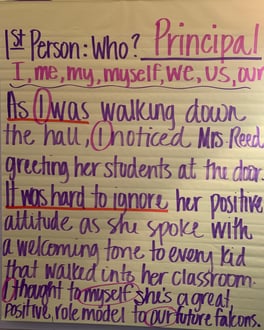 1st Person: Who? Principal
I, me, my, myself, we, us, our
As I was walking down
the hall, I noticed Mrs. Reed
greeting her students at the door.
It was hard to ignore her positive
attitude as she spoke with
a welcoming tone to every kid
that walked into her classroom.
I thought to myself she's a great,
positive, role model to our future falcons.